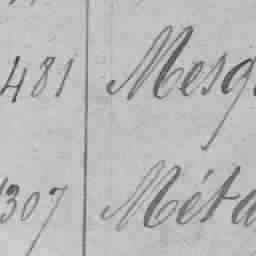 481 Mesg
1307 Méta